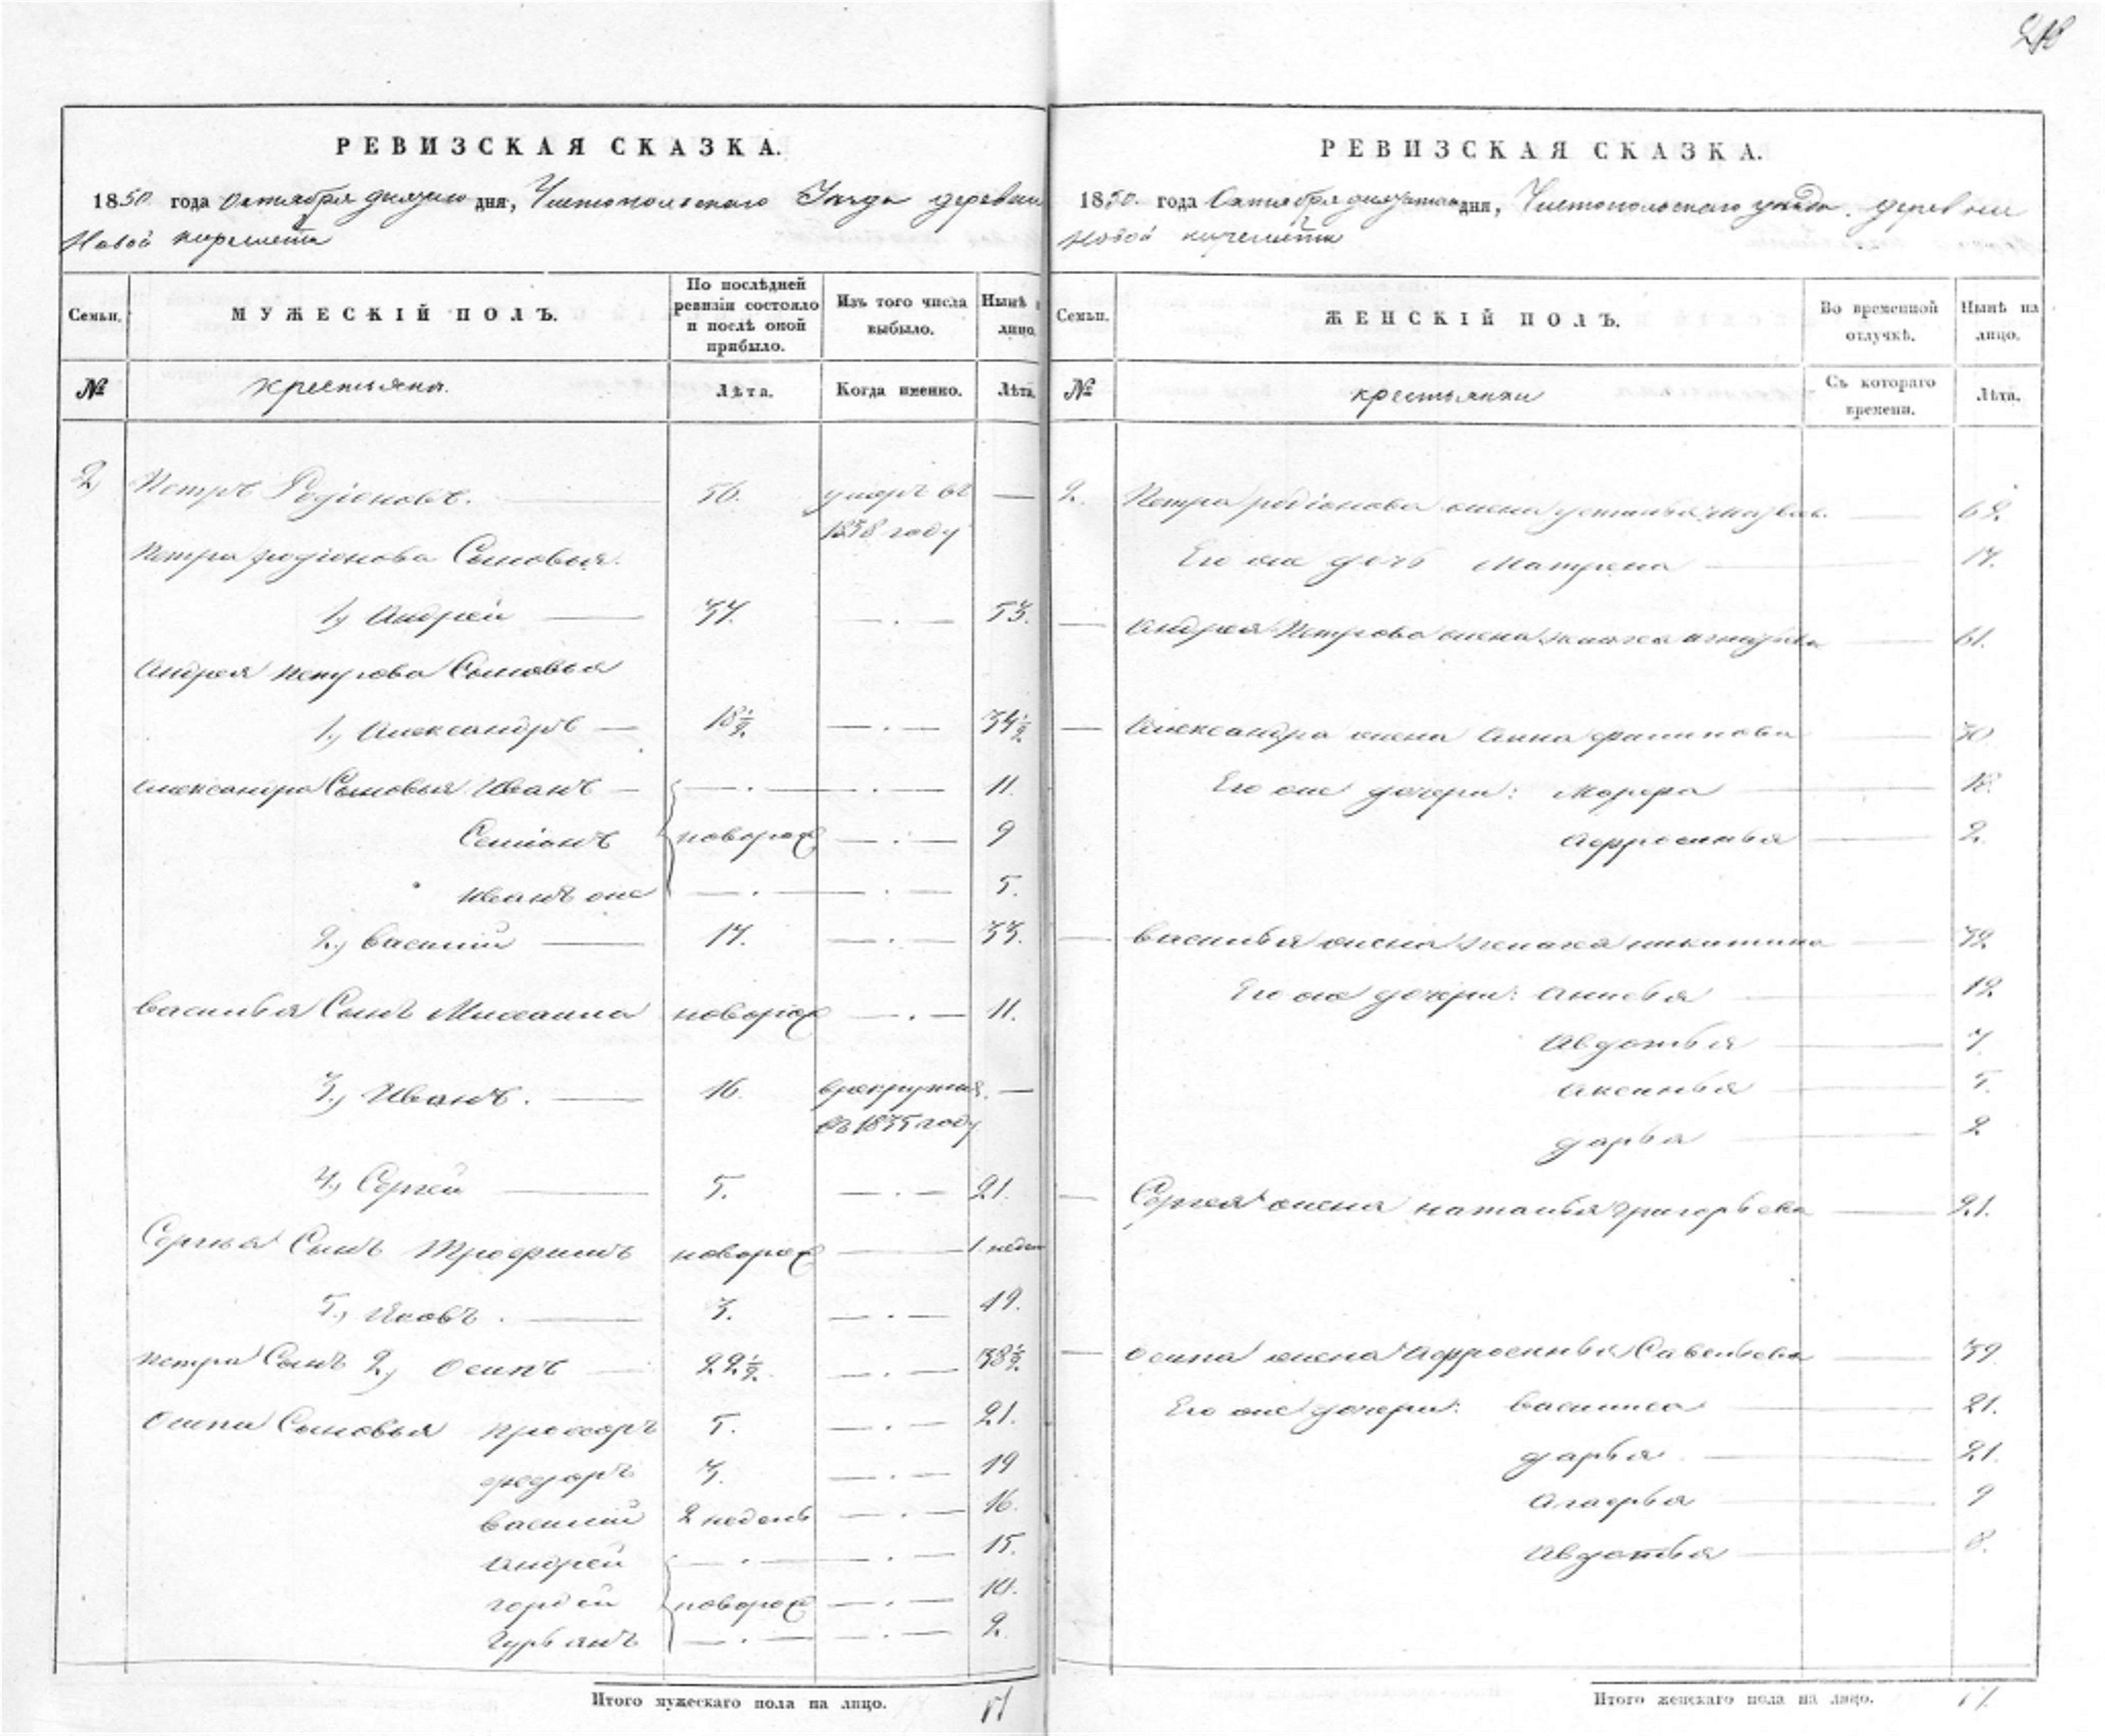 218
РЕВИЗСКАЯ СКАЗКА.
1850 года Октября дня, Чистопольскаго Уезда деревни
Новой
Семьи.
МУЖЕСКІЙ ПОЛЪ.
По послѣдней ревизіи состояло и послѣ оной прибыло.
Изъ того числа выбыло.
Нынѣ лицо.
№
крестьяна.
Лѣта.
Когда именно.
Лѣта.
2, Петръ Родіоновъ. 56. умеръ въ
1838 году
Петра Родіонова Сыновья.
1, Андрей 37. 53.
Андрея Петрова Сыновья
1, Александръ 18½ 34½
Александра Сыновья Иванъ 11.
Семіонъ новорож 9
Иванъ же 5.
2, Василій 17. 33.
Василья Сынъ новорож 11.
3, Иванъ. 16.
въ 1835 году
4, Сергей 5. 21.
Сергья Сынъ Трофимъ новорож 1 недел
5, Яковъ. 3. 19.
Петра Сынъ 2, Осипъ 22½ 38½
Осипа Сыновья Прохоръ 5. 21.
Федоръ 3. 19
Василий 2 недель 16.
Андрей 15.
Гордей новорож 10.
Гурьянъ 2.
Итого мужескаго пола на лицо. 17
РЕВИЗСКАЯ СКАЗКА.
1850. года Октября дня, Чистопольскаго уезда. деревни
Новой
Семьи.
ЖЕНСКІЙ ПОЛЪ.
Во временной отлучкѣ.
Нынѣ на лицо.
№
крестьянки
Съ котораго времени.
Лѣта.
2. Петра родіонова жена 62.
Его же дочь Матрена 17.
Андрея Петрова жена 61.
Александра жена Анна 30
Его же дочери: Марфа 12.
Афросинья 2.
Василья жена никитина 32
Его же дочери: 12
Авдотья 7
Аксинья 5.
дарья 2
Сергея жена наталья григорьева 21.
Осипа жена Афросинья Савельева 39
Его же дочери: Василиса 21.
дарья 21.
Агафья 9
Авдотья 8.
Итого женскаго пола на лицо. 17.